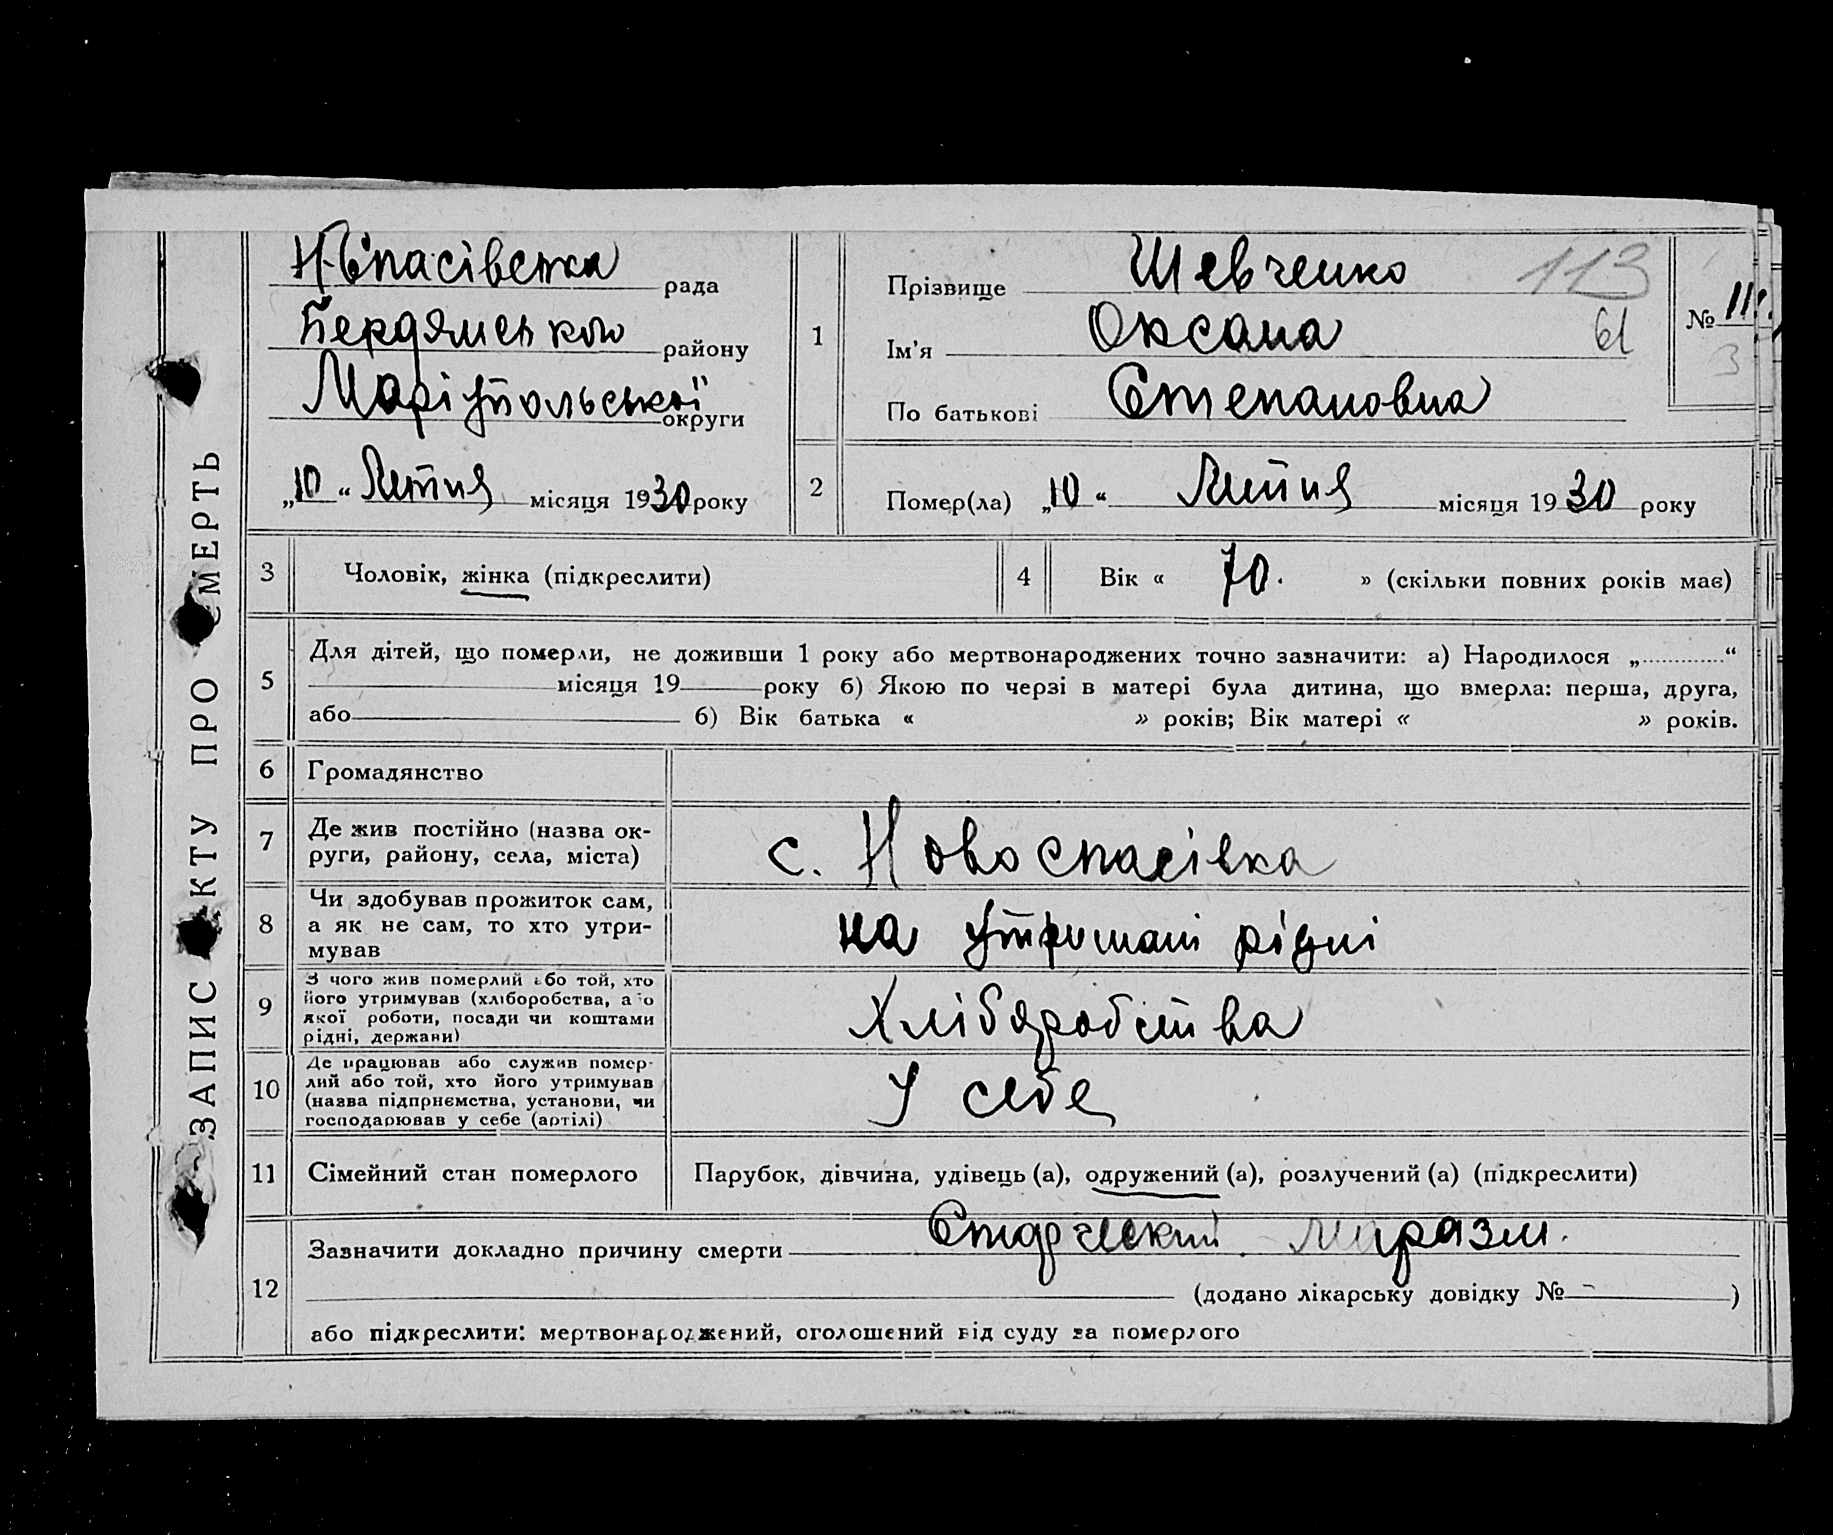 ЗАПИС АКТУ ПРО СМЕРТЬ
Н-Спасівська рада
Бердянського району
Маріупольської округи
„10“ Липня місяця 1930 року
1
Прізвище Шевченко
113
Ім'я Оксана
61
По батькові Степановна
№ 11
3
2
Помер(ла) „10“ Липня місяця 1930 року
3
Чоловік, жінка (підкреслити)
4
Вік « 70. » (скільки повних років має)
5
Для дітей, що померли, не доживши 1 року або мертвонароджених точно зазначити: а) Народилося „ “
місяця 19 року б) Якою по черзі в матері була дитина, що вмерла: перша, друга,
або б) Вік батька « » років; Вік матері « » років.
6
Громадянство
7
Де жив постійно (назва ок-
руги, району, села, міста)
с. Новоспасівка
8
Чи здобував прожиток сам,
а як не сам, то хто утри-
мував
на утримані рідні
9
З чого жив померлий або той, хто
його утримував (хліборобства, або
якої роботи, посади чи коштами
рідні, держави)
Хліборобства
10
Де працював або служив помер-
лий або той, хто його утримував
(назва підприємства, установи, чи
господарював у себе (артілі)
У себе
11
Сімейний стан померлого
Парубок, дівчина, удівець (а), одружений (а), розлучений (а) (підкреслити)
12
Зазначити докладно причину смерти Старческий маразм.
(додано лікарську довідку № - )
або підкреслити: мертвонароджений, оголошений від суду за померлого